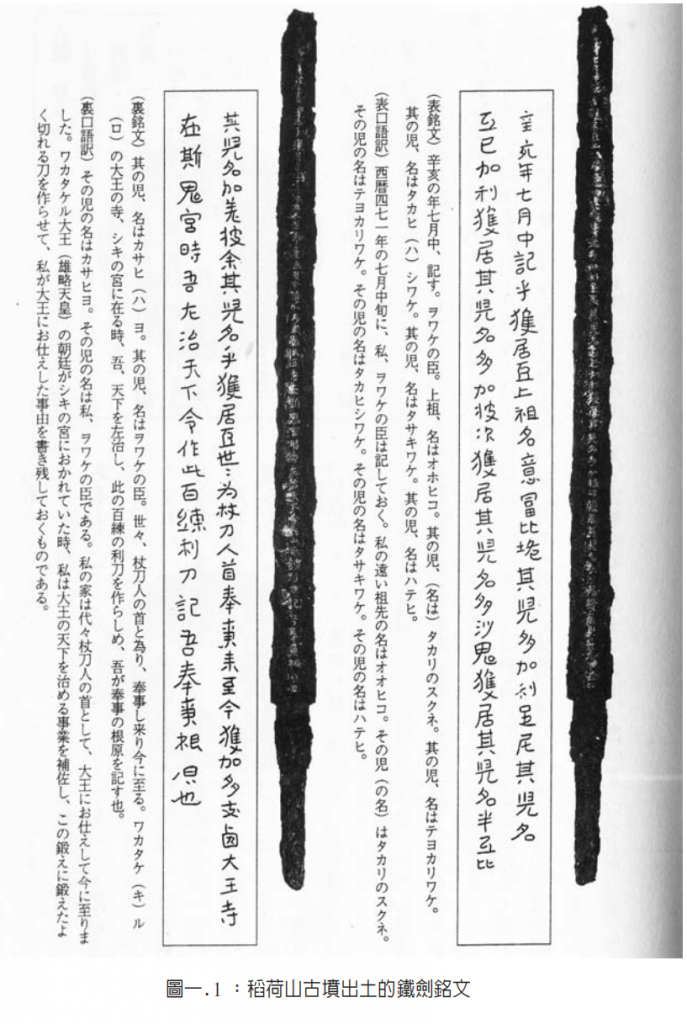 辛亥年七月中記乎獲居臣上祖名意冨比垝其児多加利足尼其児名
弖已加利獲居其児名多加披次獲居其児名多沙鬼獲居其児名半弖比
（表銘文）辛亥の年七月中、記す。ヲワケの臣。上祖、名はオホヒコ。其の児、（名は）タカリのスクネ。其の児、名はテヨカリワケ。
其の児、名はタカヒ（ハ）シワケ。其の児、名はタサキワケ。其の児、名はハテヒ。
（表口語訳）西暦四七一年の七月中旬に、私、ヲワケの臣は記しておく。私の遠い祖先の名はオオヒコ。その児（の名）はタカリのスクネ。
その児の名はテヨカリワケ。その児の名はタカヒシワケ。その児の名はタサキワケ。その児の名はハテヒ。
其児名加差披余其児名乎獲居臣世々為杖刀人首奉事来至今獲加多支鹵大王寺
在斯鬼宮時吾左治天下令作此百練利刀記吾奉事根原也
（裏銘文）其の児、名はカサヒ（ハ）ヨ。其の児、名はヲワケの臣。世々、杖刀人の首と為り、奉事し来り今に至る。ワカタケ（キ）ル
（ロ）の大王の寺、シキの宮に在る時、吾、天下を左治し、此の百練の利刀を作らしめ、吾が奉事の根原を記す也。
（裏口語訳）その児の名はカサヒヨ。その児の名は私、ヲワケの臣である。私の家は代々杖刀人の首として、大王にお仕えして今に至りま
した。ワカタケル大王（雄略天皇）の朝廷がシキの宮におかれていた時、私は大王の天下を治める事業を補佐し、この鍛えに鍛えたよ
く切れる刀を作らせて、私が大王にお仕えした事由を書き残しておくものである。
圖一.1：稻荷山古墳出土的鐵劍銘文